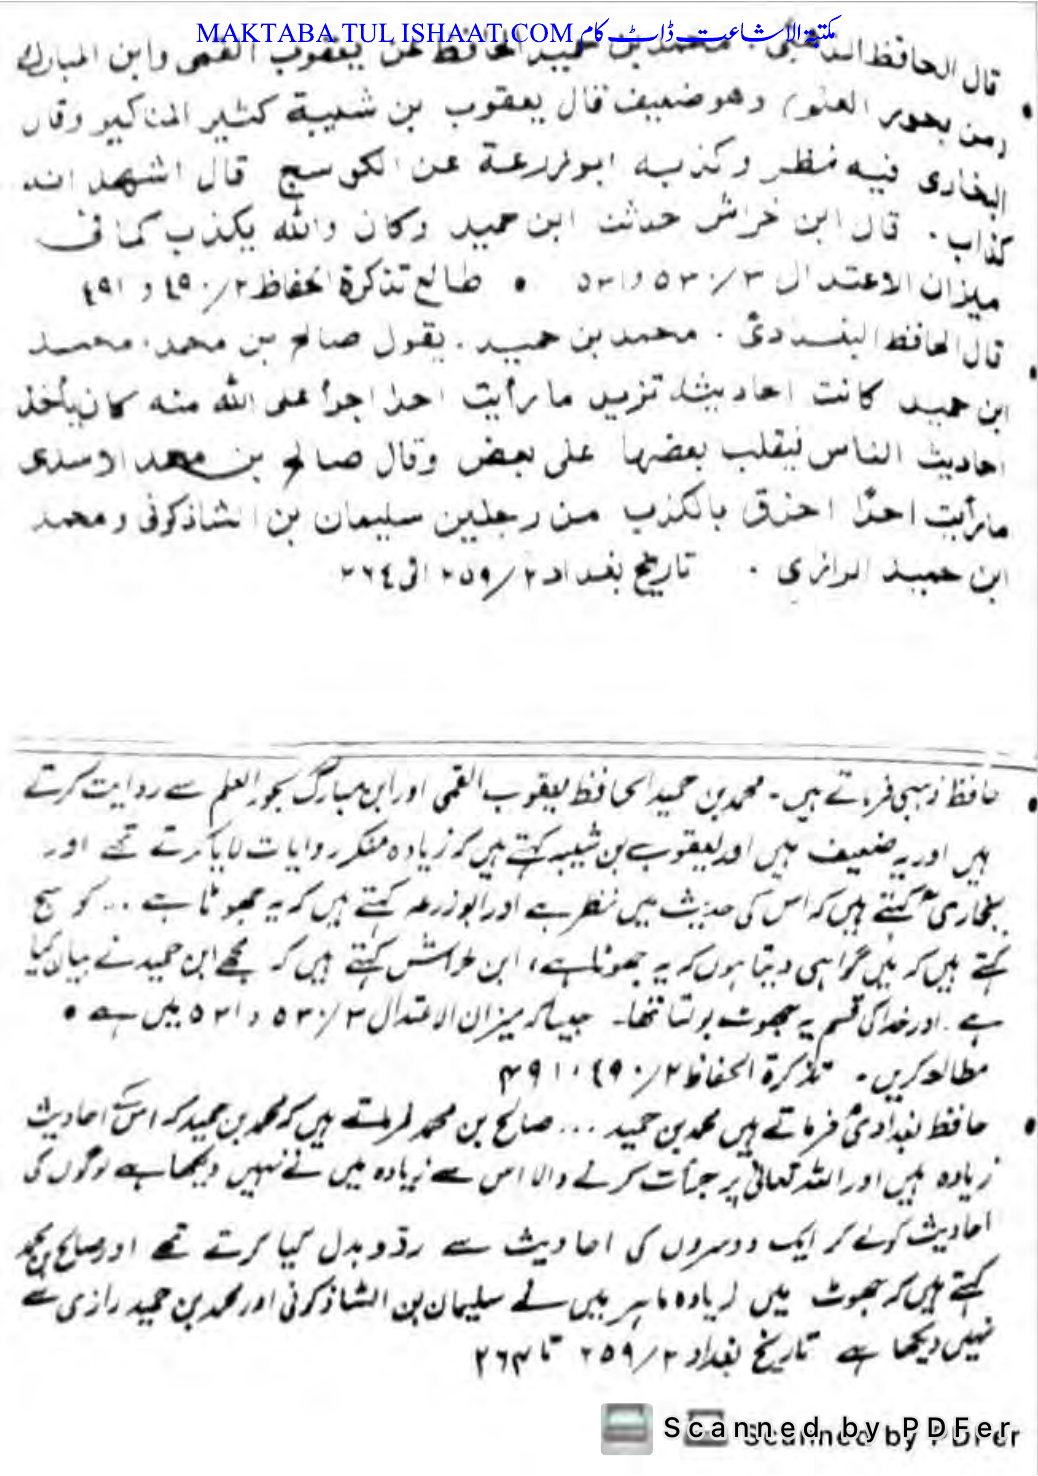 MAKTABA.TUL ISHAAT.COM مکتبۃ الاشاعت ڈاٹ کام
قال الحافظ الذهبی محمد بن حمید الحافظ عن یعقوب القمی وابن المبارك
(من بحور العلم) وهو ضعیف قال یعقوب بن شیبة کثیر المناکیر وقال
البخاری فیه نظر وکذبه ابوزرعة عن الکوسج قال اشهد انه
کذاب۔ قال ابن خراش حدثنا ابن حمید وکان والله یکذب کما فی
میزان الاعتدال ٣/٥٣٠ و٥٣١ • طالع تذکرة الحفاظ ٢/٤٩٠ و ٤٩١
• قال الحافظ البغدادیؒ۔ محمد بن حمید۔ یقول صالح بن محمد۔ محمد
ابن حمید کانت احادیثه تزید ما رأیت احدا اجرأ علی الله منه کان یأخذ
احادیث الناس فیقلب بعضها علی بعض وقال صالح بن محمد الاسدی
ما رأیت احدًا احذق بالکذب من رجلین سلیمان بن الشاذکونی ومحمد
ابن حمید الرازی۔ تاریخ بغداد ٢/٢٥٩ الی ٢٦٤
• حافظ ذہبی فرماتے ہیں۔ محمد بن حمید الحافظ یعقوب القمی اور ابن مبارک بحور العلم سے روایت کرتے
ہیں اور یہ ضعیف ہیں اور یعقوب بن شیبہ کہتے ہیں کہ زیادہ منکر روایات لایا کرتے تھے اور
بخاریؒ کہتے ہیں کہ اس کی حدیث میں نظر ہے اور ابوزرعہ کہتے ہیں کہ یہ جھوٹا ہے ... کوسج
کہتے ہیں کہ میں گواہی دیتا ہوں کہ یہ جھوٹا ہے، ابن خراش کہتے ہیں کہ مجھے ابن حمید نے بیان کیا
ہے۔ اور خدا کی قسم یہ جھوٹ بولتا تھا۔ جیسا کہ میزان الاعتدال ٣/٥٣٠ و ٥٣١ میں ہے •
مطالعہ کریں۔ تذکرة الحفاظ ٢/٤٩٠، ٤٩١
• حافظ بغدادیؒ فرماتے ہیں محمد بن حمید ... صالح بن محمد فرماتے ہیں کہ محمد بن حمید کہ اس کے احادیث
زیادہ ہیں اور اللہ تعالیٰ پر جرأت کرنے والا اس سے زیادہ میں نے نہیں دیکھا ہے لوگوں کی
احادیث کو لے کر ایک دوسروں کی احادیث سے ردوبدل کیا کرتے تھے اور صالح بن محمد
کہتے ہیں کہ جھوٹ میں زیادہ ماہر میں نے سلیمان بن الشاذکونی اور محمد بن حمید رازی سے
نہیں دیکھا ہے تاریخ بغداد ٢/٢٥٩ تا ٢٦٤
Scanned by PDFer
Scanned by PDFer